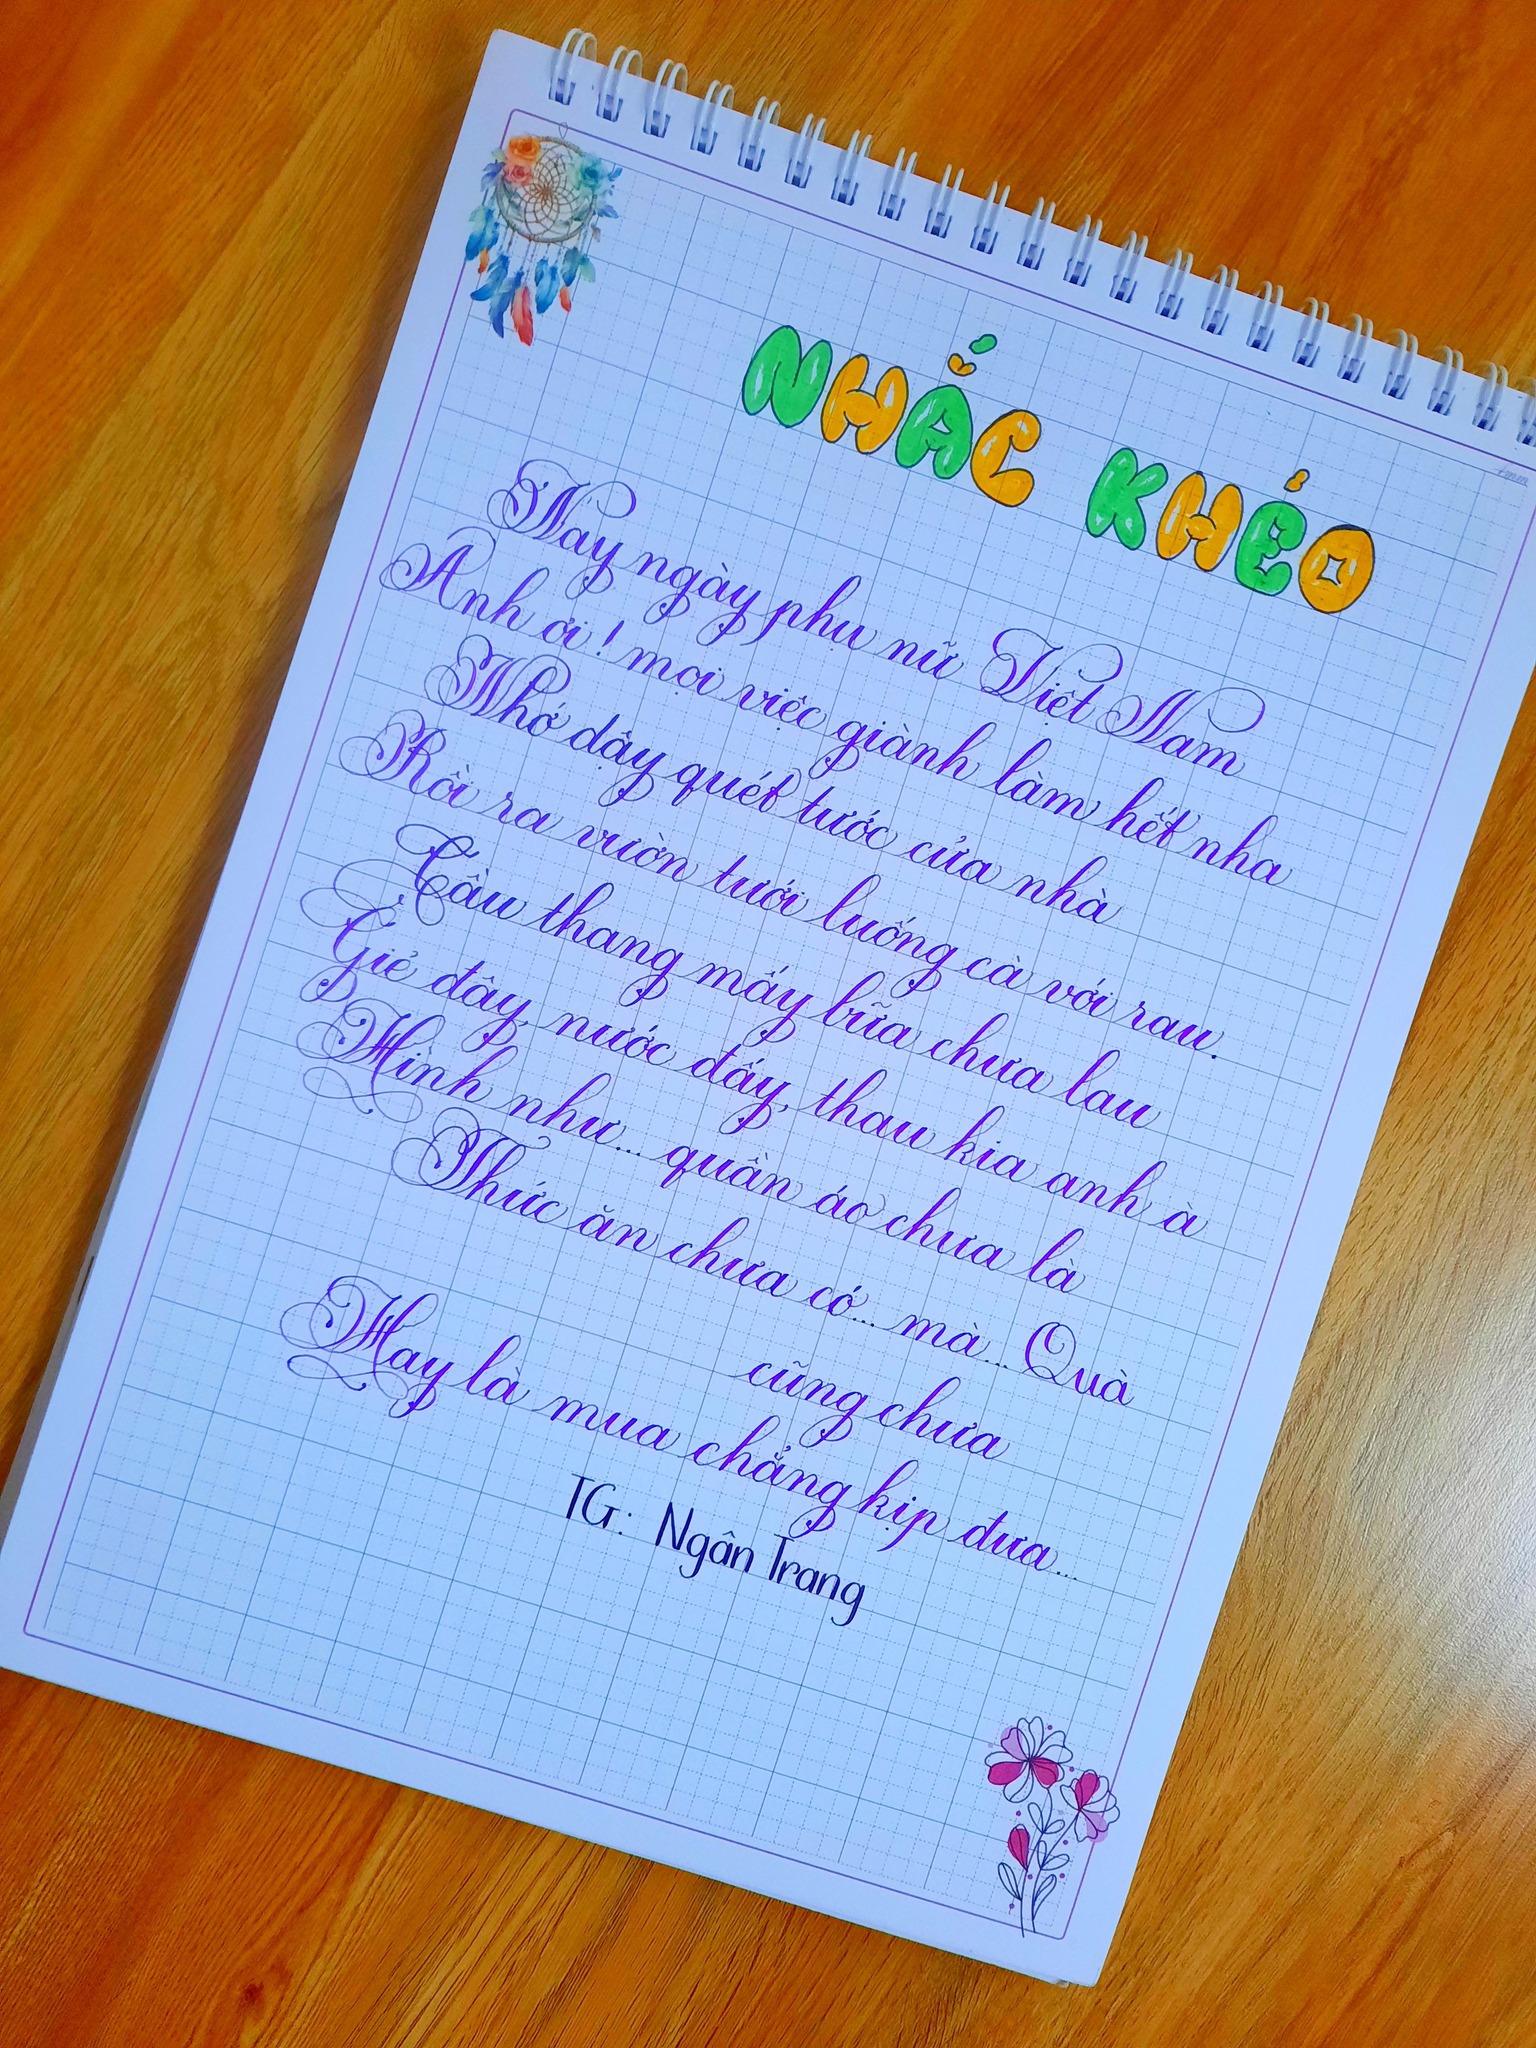 NHẮC KHÉO
Nay ngày phụ nữ Việt Nam
Anh ơi! mọi việc giành làm hết nha
Nhớ dậy quét tước cửa nhà
Rồi ra vườn tưới luống cà với rau.
Cầu thang mấy bữa chưa lau
Giẻ đây, nước đấy, thau kia anh à
Hình như... quần áo chưa là
Thức ăn chưa có... mà... Quà
cũng chưa
Hay là mua chẳng kịp đưa...
TG: Ngân Trang